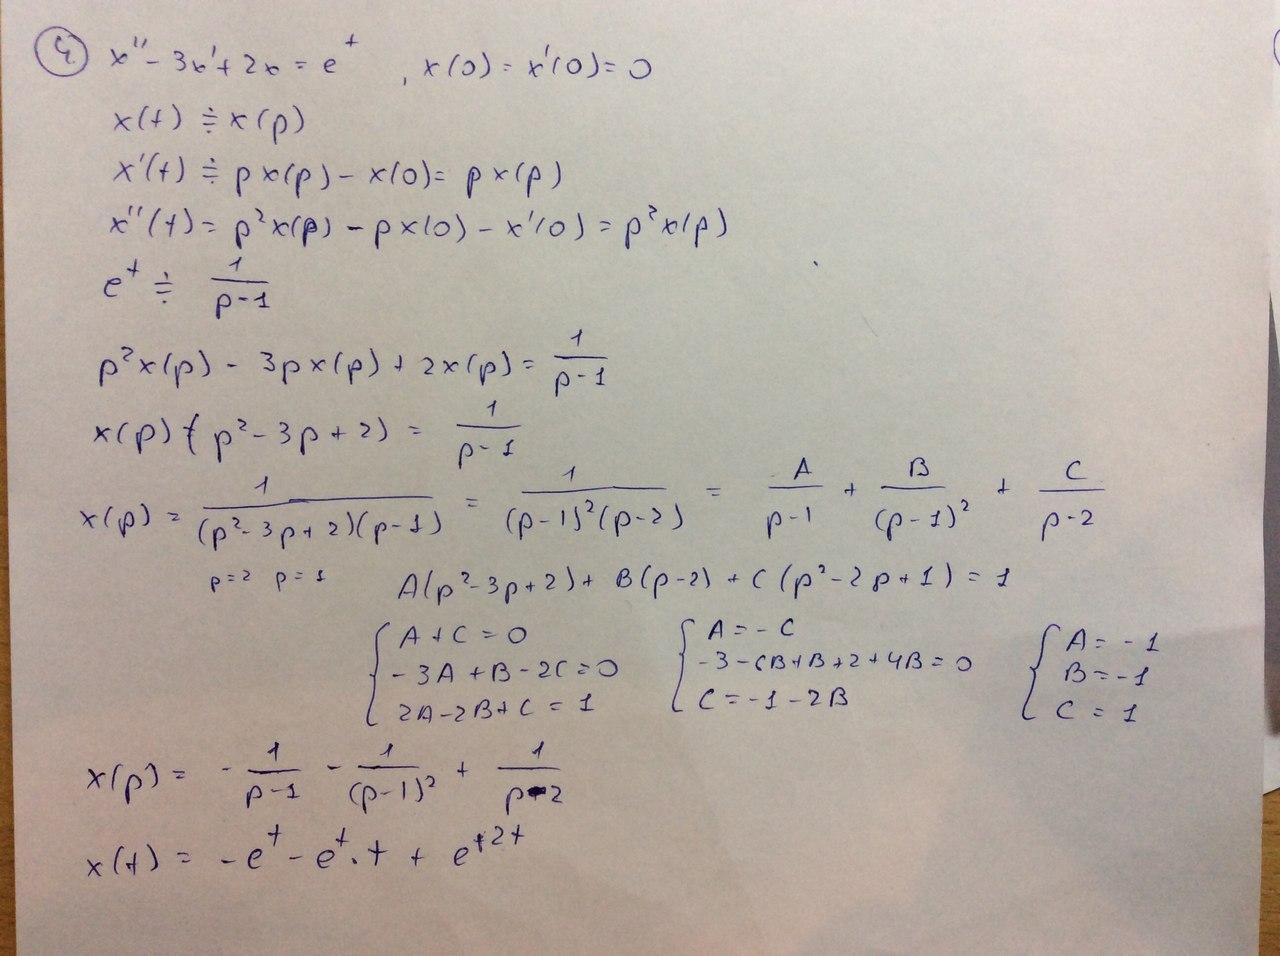 4 x'' - 3x' + 2x = e^t , x(0) = x'(0) = 0
x(t) ≑ x(p)
x'(t) ≑ px(p) - x(0) = px(p)
x''(t) = p²x(p) - px(0) - x'(0) = p²x(p)
e^t ≑ 1/(p-1)
p²x(p) - 3px(p) + 2x(p) = 1/(p-1)
x(p) (p² - 3p + 2) = 1/(p-1)
x(p) = 1/((p²-3p+2)(p-1)) = 1/((p-1)²(p-2)) = A/(p-1) + B/(p-1)² + C/(p-2)
p=2 p=1 A(p²-3p+2) + B(p-2) + C(p²-2p+1) = 1
{ A + C = 0 { A = -C { A = -1
-3A + B - 2C = 0 -3-6B+B+2+4B=0 B = -1
2A - 2B + C = 1 C = -1-2B C = 1
x(p) = - 1/(p-1) - 1/(p-1)² + 1/(p-2)
x(t) = -e^t - e^t · t + e^{+2t}